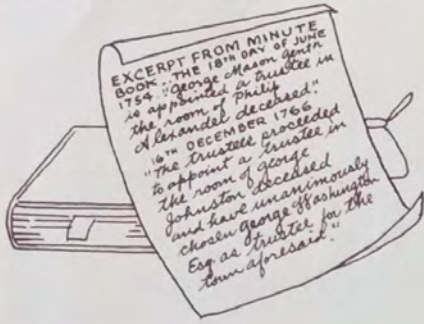 EXCERPT FROM MINUTE
BOOK. THE 18TH DAY OF JUNE
1754. "George Mason Gentn
is appointed a trustee in
the room of Philip
Alexander deceased."
16TH DECEMBER 1766
"The trustees proceeded
to appoint a trustee in
the room of George
Johnston deceased
and have unanimously
chosen George Washington
Esq. as trustee for the
town aforesaid."